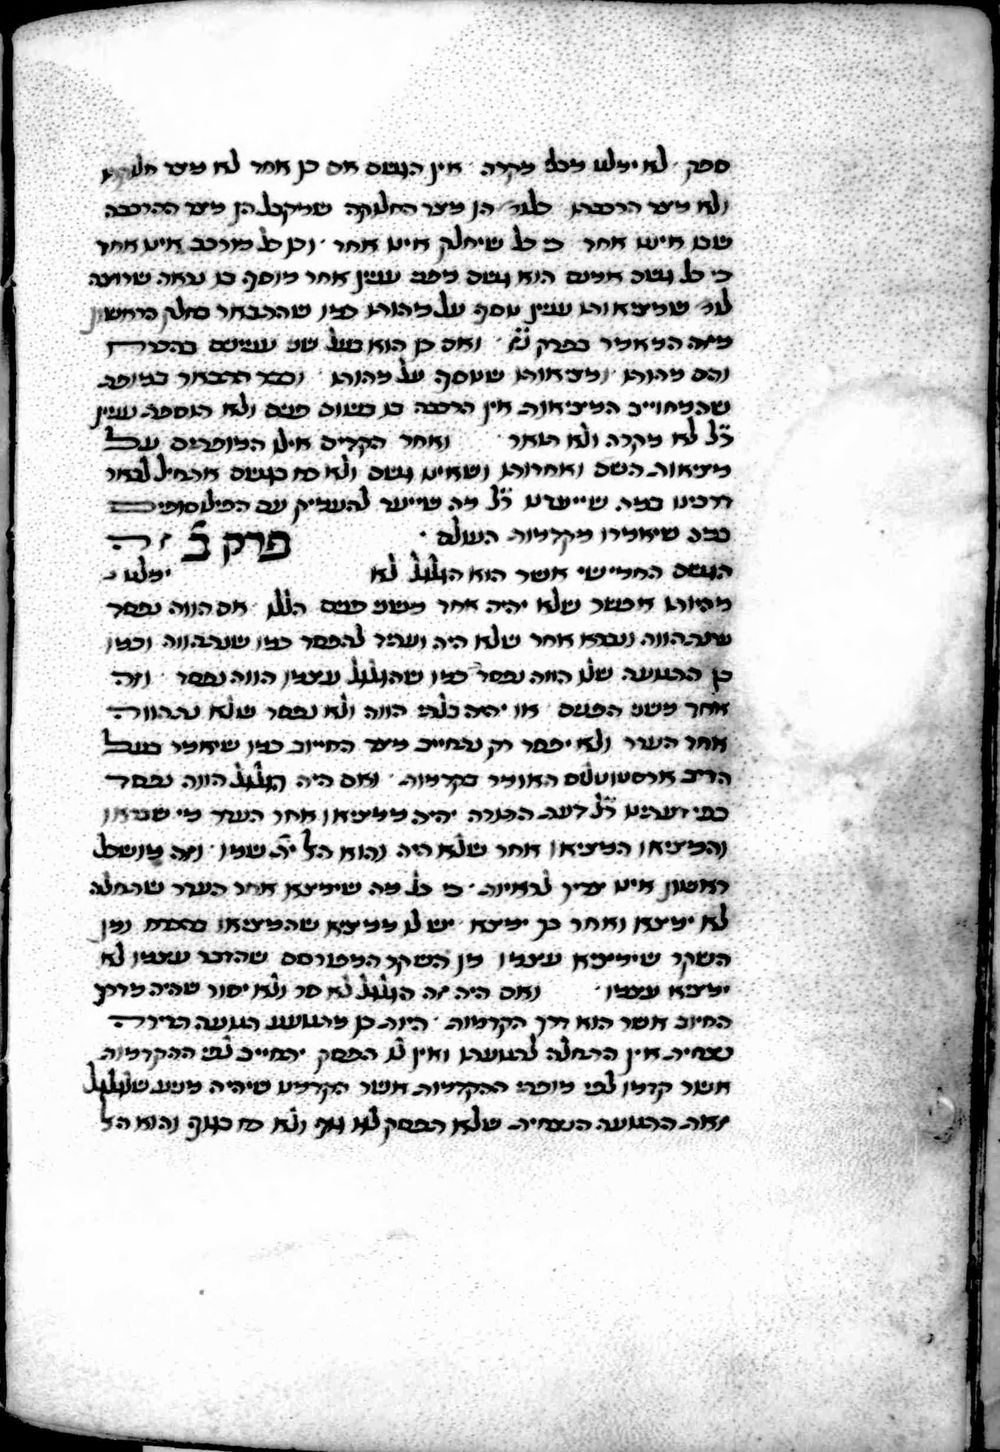 ספק · לא ימלט מכל מקרה · אין הגשם אם כן אחד לא מצד חלוקתו
ולא מצד הרכבתו כלומר הן מצד החלוקה שמקבל הן מצד ההרכבה
שבו אינו אחד כי כל שיחלק אינו אחד · וכן כל מורכב אינו אחד
כי כל גשם אמנם הוא גשם מפני ענין אחר מוסף בו נראה שרוצה
לומר שמציאותו ענין נוסף על מהותו כמו שהתבאר בחלק הראשון
מזה המאמר בפרק · ואם כן הוא בעל שני ענינים בהכרח
והם מהותו ומציאותו שנוסף על מהותו · וכבר התבאר במופת
שהמחוייב המציאות אין הרכבה בו בשום פנים ולא תוספת ענין
ר״ל לא מקרה ולא תואר · ואחר הקדים אילו המופתים על
מציאות השם ואחדותו ושאינו גשם ולא כח בגשם אתחיל לבאר
דרכינו במה שייעדנו ר״ל מה שייעד להעתיק עם הפילוסופים
במה שיאמרו מקדמות העולם ·
פרק ב׳ זה
הגשם החמישי אשר הוא הגלגל לא ימלט
מהיותו אפשר שלא יהיה אחד משני פנים הללו · אם הווה נפסד
שנתהווה ונברא אחר שלא היה ועתיד להפסד כמו שנתהווה וכמו
כן התנועה שלו הווה נפסד כמו שהגלגל עצמו הווה נפסד · וזה
אחד משני הפנים · או יהיה בלתי הווה ולא נפסד שלא נתהווה
אחר העדר ולא יפסד רק נתחייב מצד החיוב כמו שיאמר בעל
הריב ארסטוטלוס האומר בקדמות · ואם היה הגלגל הווה נפסד
כפי דעתינו ר״ל דעת התורה יהיה ממציאו אחר העדר מי שבראו
והמציאו המציאו אחר שלא היה והוא האל ית׳ שמו · וזה מושכל
ראשון אינו צריך לראיות · כי כל מה שימצא אחר העדר שתחלה
לא ימצא ואחר כך ימצא · יש לו ממציא שהמציאו בהכרח ומן
השקר שימציא עצמו מן השקר המפורסם שהדבר עצמו לא
ימציא עצמו · ואם היה זה הגלגל לא סר ולא יסור שהיה מדרך
החיוב אשר הוא דרך הקדמות · היות כן מתנועע תנועה תדירה
נצחית אין התחלה לתנועתו ואין לו הפסק יתחייב לפי ההקדמות
אשר קדמו לפי מופתי ההקדמות אשר הקדמנו שיהיה מניע שלגלגל
זאת התנועה הנצחית שלא תפסק לא גוף ולא כח בגוף והוא האל